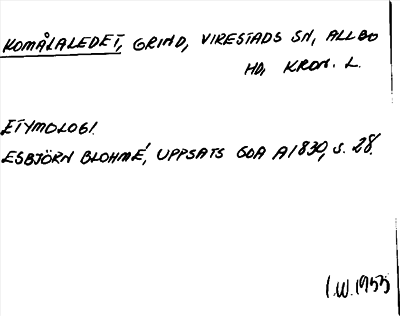 KOMÅLALEDET, GRIND, VIRESTADS SN, ALLBO
HD, KRON. L.
ETYMOLOGI.
ESBJÖRN BLOHMÉ, UPPSATS GDA A1830, S. 28.
I.W. 1953